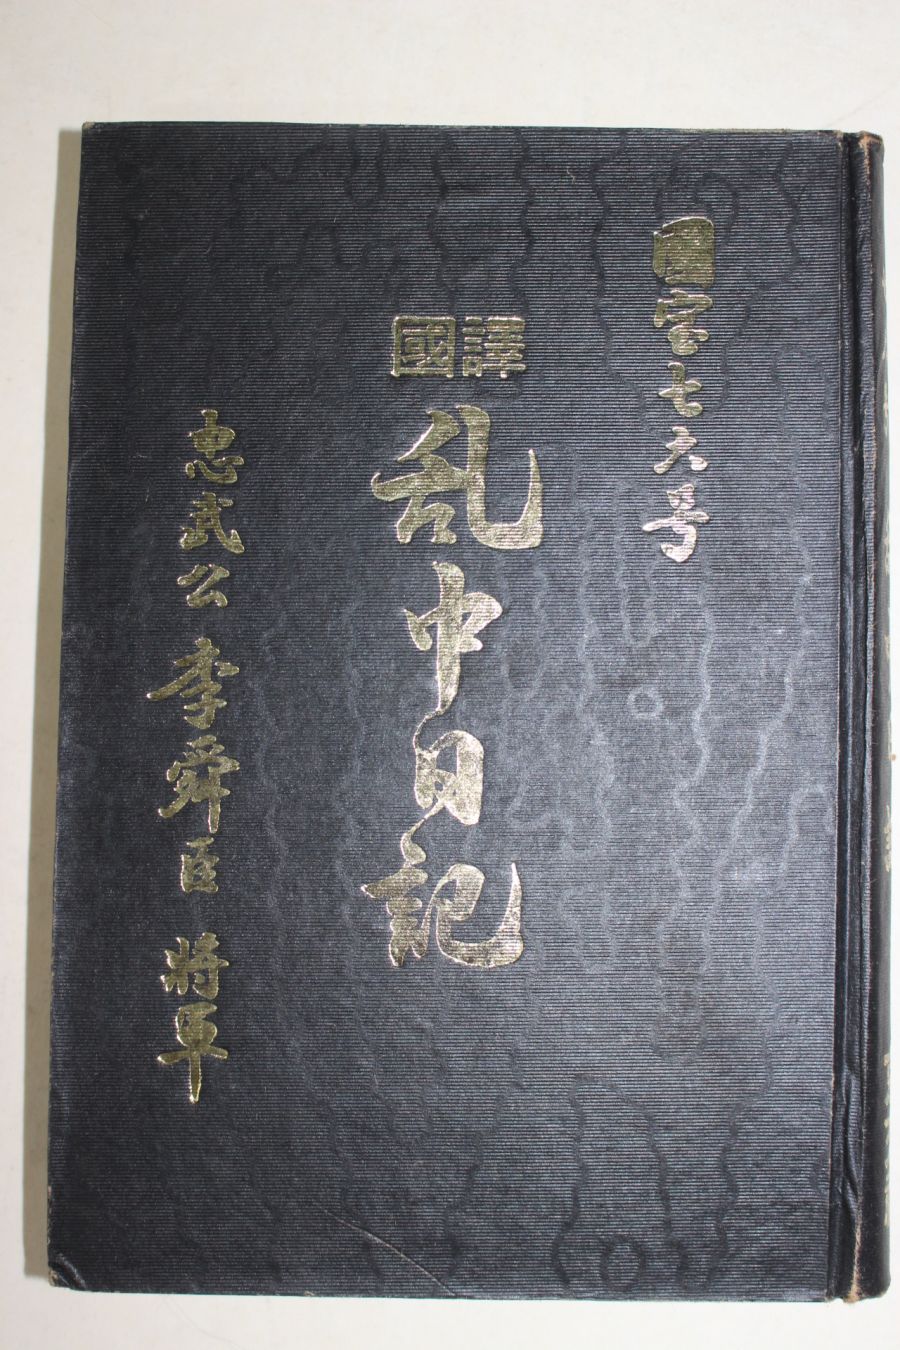 国宝七六号
國譯
乱中日記
忠武公 李舜臣 將軍